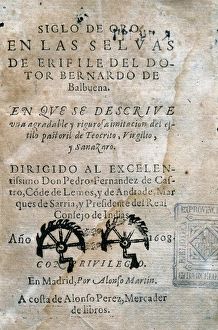 SIGLO DE ORO,
EN LAS SELVAS
DE ERIFILE DEL DO-
TOR BERNARDO DE
Balbuena.
EN QUE SE DESCRIVE
vna agradable y rigurosa imitacion del es-
tilo pastoril de Teocrito, Virgilio,
y Sanazaro.
DIRIGIDO AL EXCELEN-
tissimo Don Pedro Fernandez de Cas-
tro, Cõde de Lemos, y de Andrade, Mar-
ques de Sarria, y Presidente del Real
Consejo de Indias.
Año 1608.
CON PRIVILEGIO.
En Madrid, Por Alonso Martin.
A costa de Alonso Perez, Mercader
de libros.